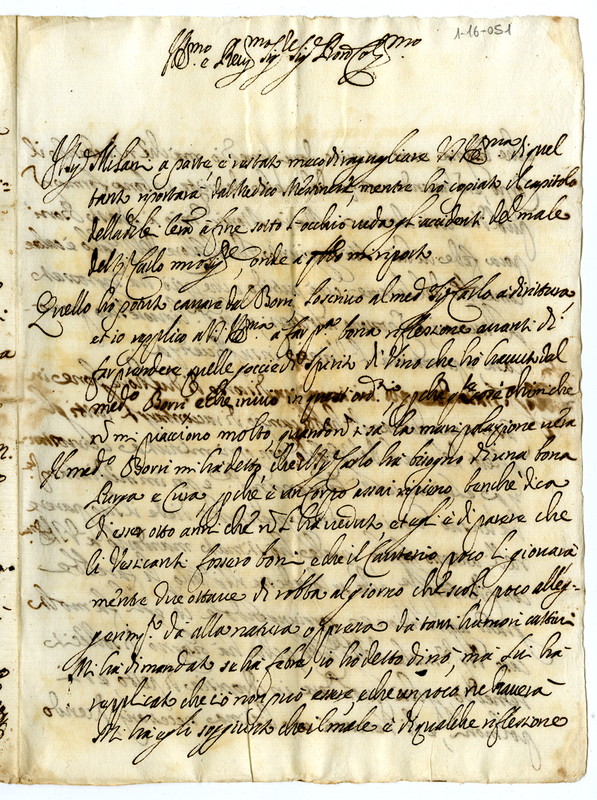 1-16-051
Ill.mo e Rev.mo Sig.re Sig.r Pron Col.mo
Il Sig.r Milani a parte, è restato meco di raguagliare V.S. Ill.ma di quel
tanto riportarà dal Medico, mentre ho copiato il capitolo
della di lei lettera a fine sotto l'occhio veda gl'accidenti del male
del Sig.r Carlo mio Sig.re, onde a mi riporto
Quello ho potuto cavare dal Borri, lo scrivo al med.o Sig.r Carlo a dirittura,
et io replico a V.S. Ill.ma a far p.a bona riflessione avanti di
far prendere quelle goccie di spirito di vino che ho havuto dal
med.o Borri e che invio in quest'ord.rio, p che
n mi piacciono molto, quando n si sà la manipolazione vera
Il med.o Borri mi ha detto, che il Sig.r Carlo ha bisogno di una bona
Purga e Cura, p che è un corpo assai ripieno, benche dica
d'esser otto anni che n l'ha veduto et egli è di parere che
li Vesicanti fossero boni, e che il Cauterio poco li giovarà
mentre due ottave di robba al giorno che scoli poco alleg-
gerim.to dà alla natura oppressa da tanti humori cattivi
Mi ha dimandato se ha febre, io ho detto di nò, mà lui hà
replicato che ciò non può essere, e che un poco ne haverà
Mi ha egli soggiunto che il male è di qualche riflessione